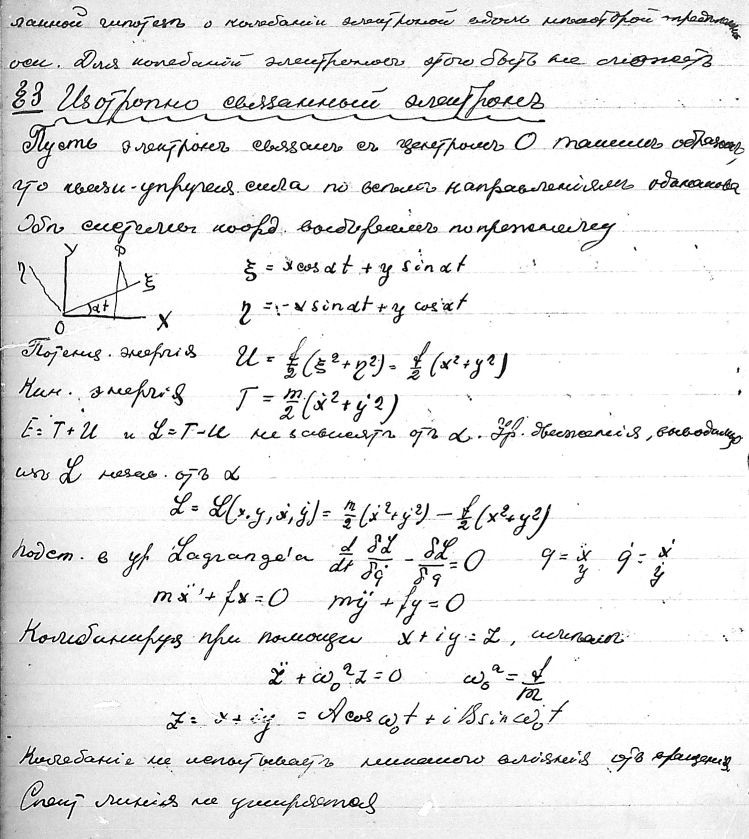 ланной гипотезѣ о колебаніи электроной вдоль некоторой
оси. Для колебаній электроновъ этого быть не можетъ
§3 Изотропно связанный электронъ
Пусть электронъ связанъ съ центромъ O такимъ образомъ,
что квази-упругая сила по всѣмъ направленіямъ одинакова
Обѣ системы коорд. выбираемъ попрежнему
Y P η ξ αt O X
ξ = x cos αt + y sin αt
η = -x sin αt + y cos αt
Потенц. энергія U = f/2 (ξ² + η²) = f/2 (x² + y²)
Кин. энергія T = m/2 (ẋ² + ẏ²)
E = T + U и L = T - U не зависятъ отъ α. Ур. движенія, выводимыя
изъ L незав. отъ α
L = L(x, y, ẋ, ẏ) = m/2 (ẋ² + ẏ²) − f/2 (x² + y²)
Подст. в ур Lagrange'a d/dt δL/δq̇ − δL/δq = 0 q = x y q̇ = ẋ ẏ
mẍ + fx = 0 mÿ + fy = 0
Комбинируя при помощи x + iy = z,
z̈ + ω₀² z = 0 ω₀² = f/m
z = x + iy = A cos ω₀t + i B sin ω₀t
Колебаніе не испытываетъ никакого вліянія отъ вращенія
Спект линія не уширяется